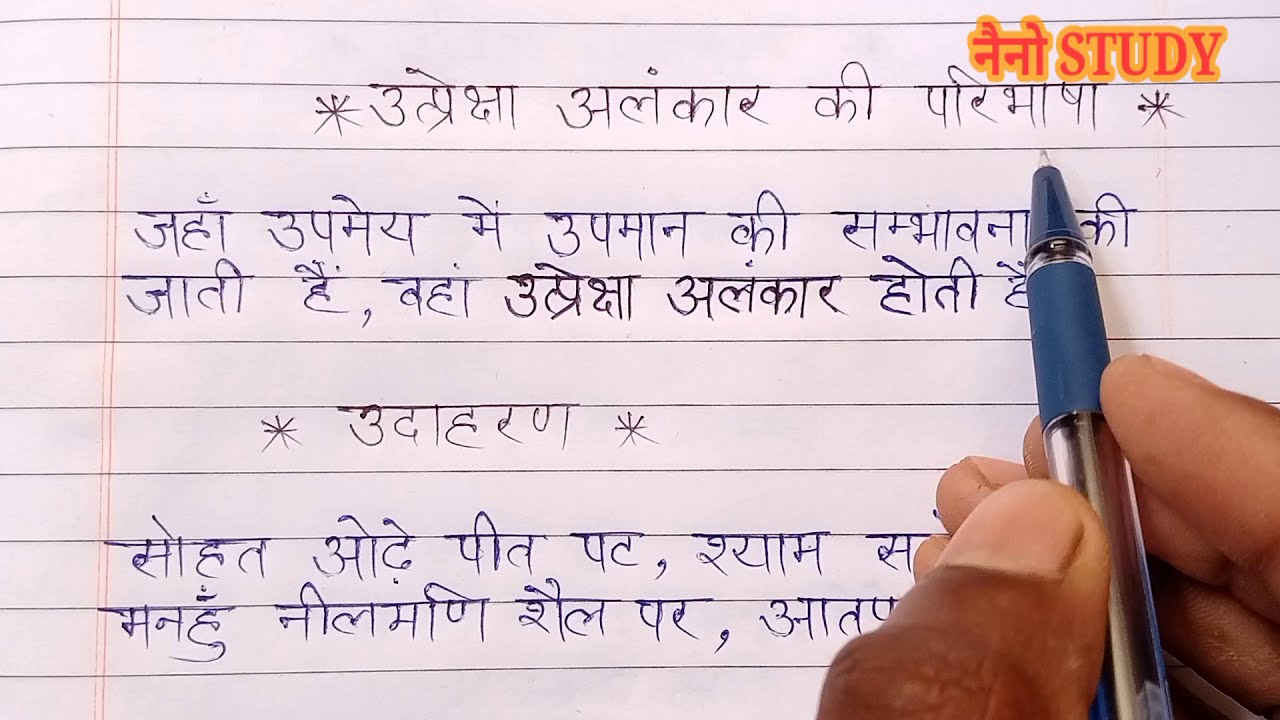 नैनो STUDY
* उत्प्रेक्षा अलंकार की परिभाषा *
जहाँ उपमेय में उपमान की सम्भावना की
जाती हैं, वहां उत्प्रेक्षा अलंकार होती है
* उदाहरण *
सोहत ओढ़े पीत पट, श्याम
मनहुँ नीलमणि शैल पर,